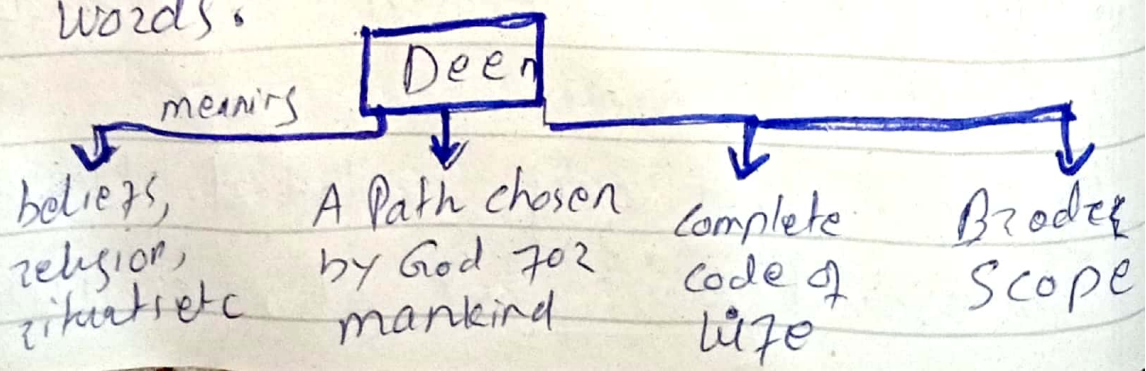 Words.
Deen
meanins
beliefs,
religion,
rituatsetc
A Path chosen
by God for
mankind
complete
code of
life
Broder
Scope